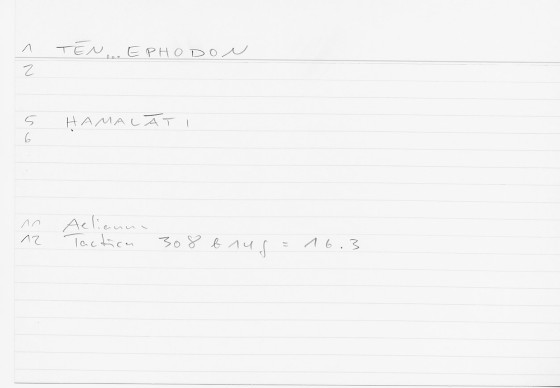 1 TĒN... EPHODON
2
5 ḤAMALĀTI
6
11 Aelianus
12 Tactica 308 b 14 f = 16.3